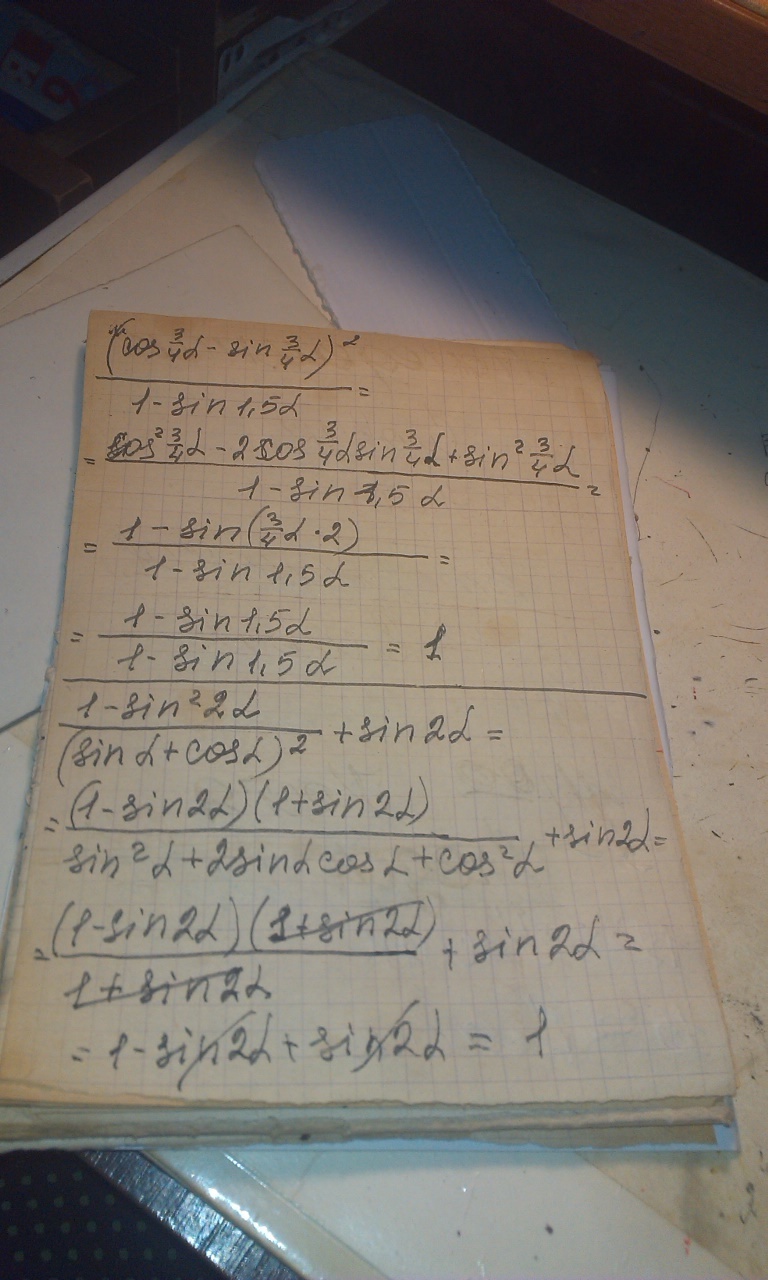 (cos 3/4 α - sin 3/4 α)²
1 - sin 1,5α =
= cos² 3/4 α - 2 cos 3/4 α sin 3/4 α + sin² 3/4 α
1 - sin 1,5 α =
= 1 - sin(3/4 α · 2)
1 - sin 1,5α =
= 1 - sin 1,5α
1 - sin 1,5α = 1
1 - sin² 2α
(sin α + cos α)² + sin 2α =
= (1 - sin 2α)(1 + sin 2α)
sin² α + 2 sin α cos α + cos² α + sin 2α =
= (1 - sin 2α)(1 + sin 2α)
1 + sin 2α + sin 2α =
= 1 - sin 2α + sin 2α = 1